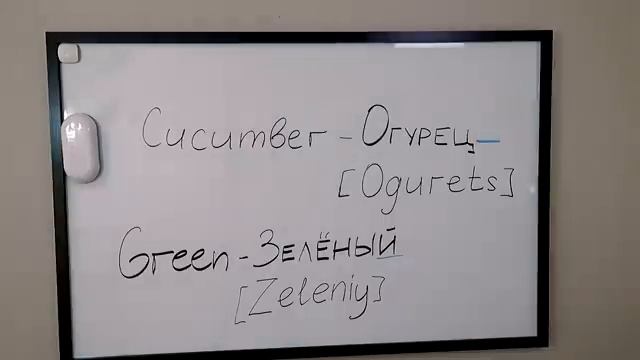 Cucumber - Огурец
[Ogurets]
Green - Зелёный
[Zeleniy]